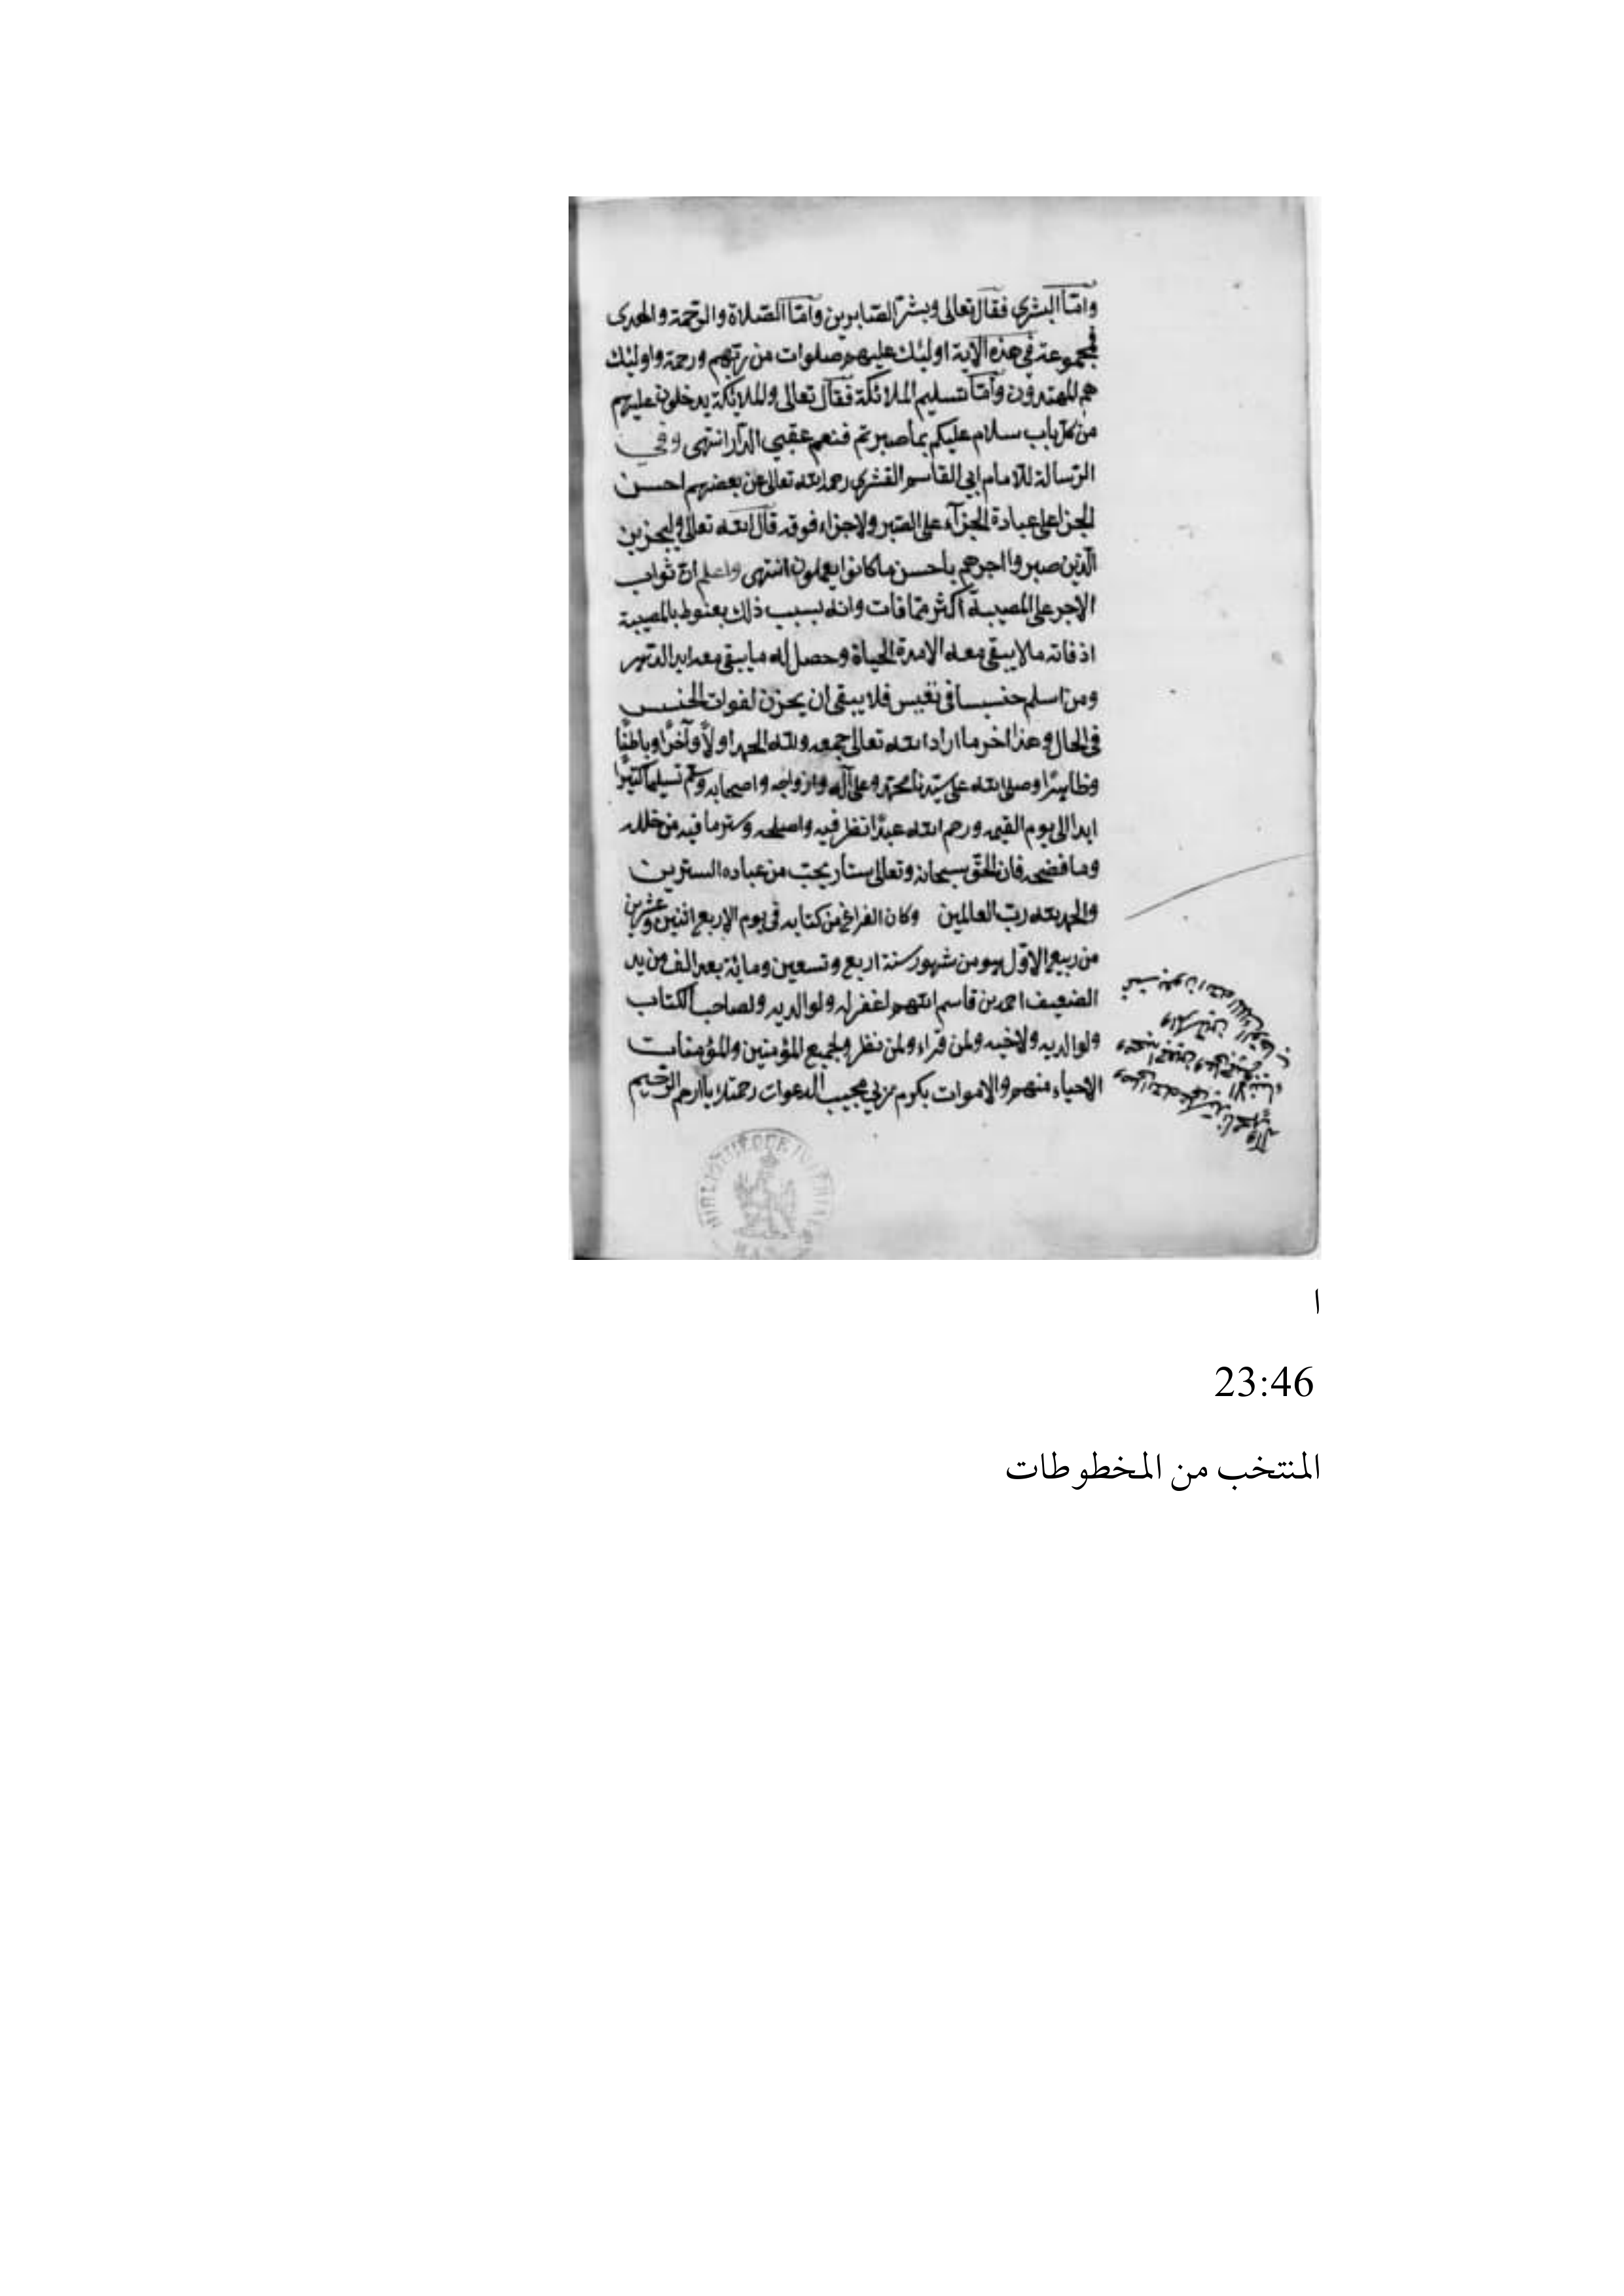 وامّا البشرى فقال تعالى وبشّر الصّابرين وامّا الصّلاة والرّحمة والهدى
فمجموعة في هذه الآية اولئك عليهم صلوات من ربّهم ورحمة واولئك
هم المهتدون وامّا تسليم الملائكة فقال تعالى والملائكة يدخلون عليهم
من كلّ باب سلام عليكم بما صبرتم فنعم عقبي الدّار انتهى وفي
الرّسالة للامام ابي القاسم القشري رحمه الله تعالى عن بعضهم احسن
الجزا على عبادة الجزآء على الصّبر ولا جزاء فوقه قال الله تعالى وليجزين
الّذين صبروا اجرهم باحسن ما كانوا يعملون انتهى واعلم انّ ثواب
الاجر على المصيبة اكثر ممّا فات وانه بسبب ذلك بالمصيبة
اذ فاته ما لا يبقى معه الا مدة الحياة وحصل له ما يبقى معه ابد
ومن اسلم في نفيس فلا يبقى ان يحزن لفوات
في الحال وهذا اخر ما اراد الله تعالى جمعه ولله الحمد اولًا وآخرًا وباطنًا
وظاهرًا وصلى الله على سيّدنا محمّد وعلى آله وازواجه واصحابه وسلّم تسليما كثيرًا
ابدا الى يوم القيمه ورحم الله عبدًا نظر فيه واصلحه وستر ما فيه من خلله
وما فضحه فان الحقّ سبحانه وتعالى ستار يحبّ من عباده السترين
والحمد لله ربّ العالمين وكان الفراغ من كتابه في يوم الاربع اثنين وعشرين
من ربيع الاوّل من شهور سنة اربع وتسعين ومائة بعد الف من يد
الضعيف احمد بن قاسم اللهم اغفر له ولوالديه ولصاحب الكتاب
ولوالديه ولاخيه ولمن قراء ولمن نظر ولجميع المؤمنين والمؤمنات
الاحياء منهم والاموات بكرم مجيب الدعوات رحمتك يا ارحم الرّحيم
ا
23:46
المنتخب من المخطوطات